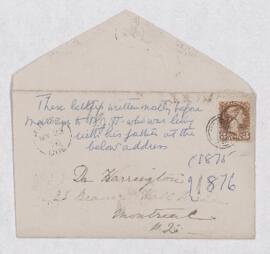 These letters written mostly before
Marriage to B.J.H. who was living
with his father at the
below address
(1875
1876
Dr Harrington
23 Beaver Hall
Montreal